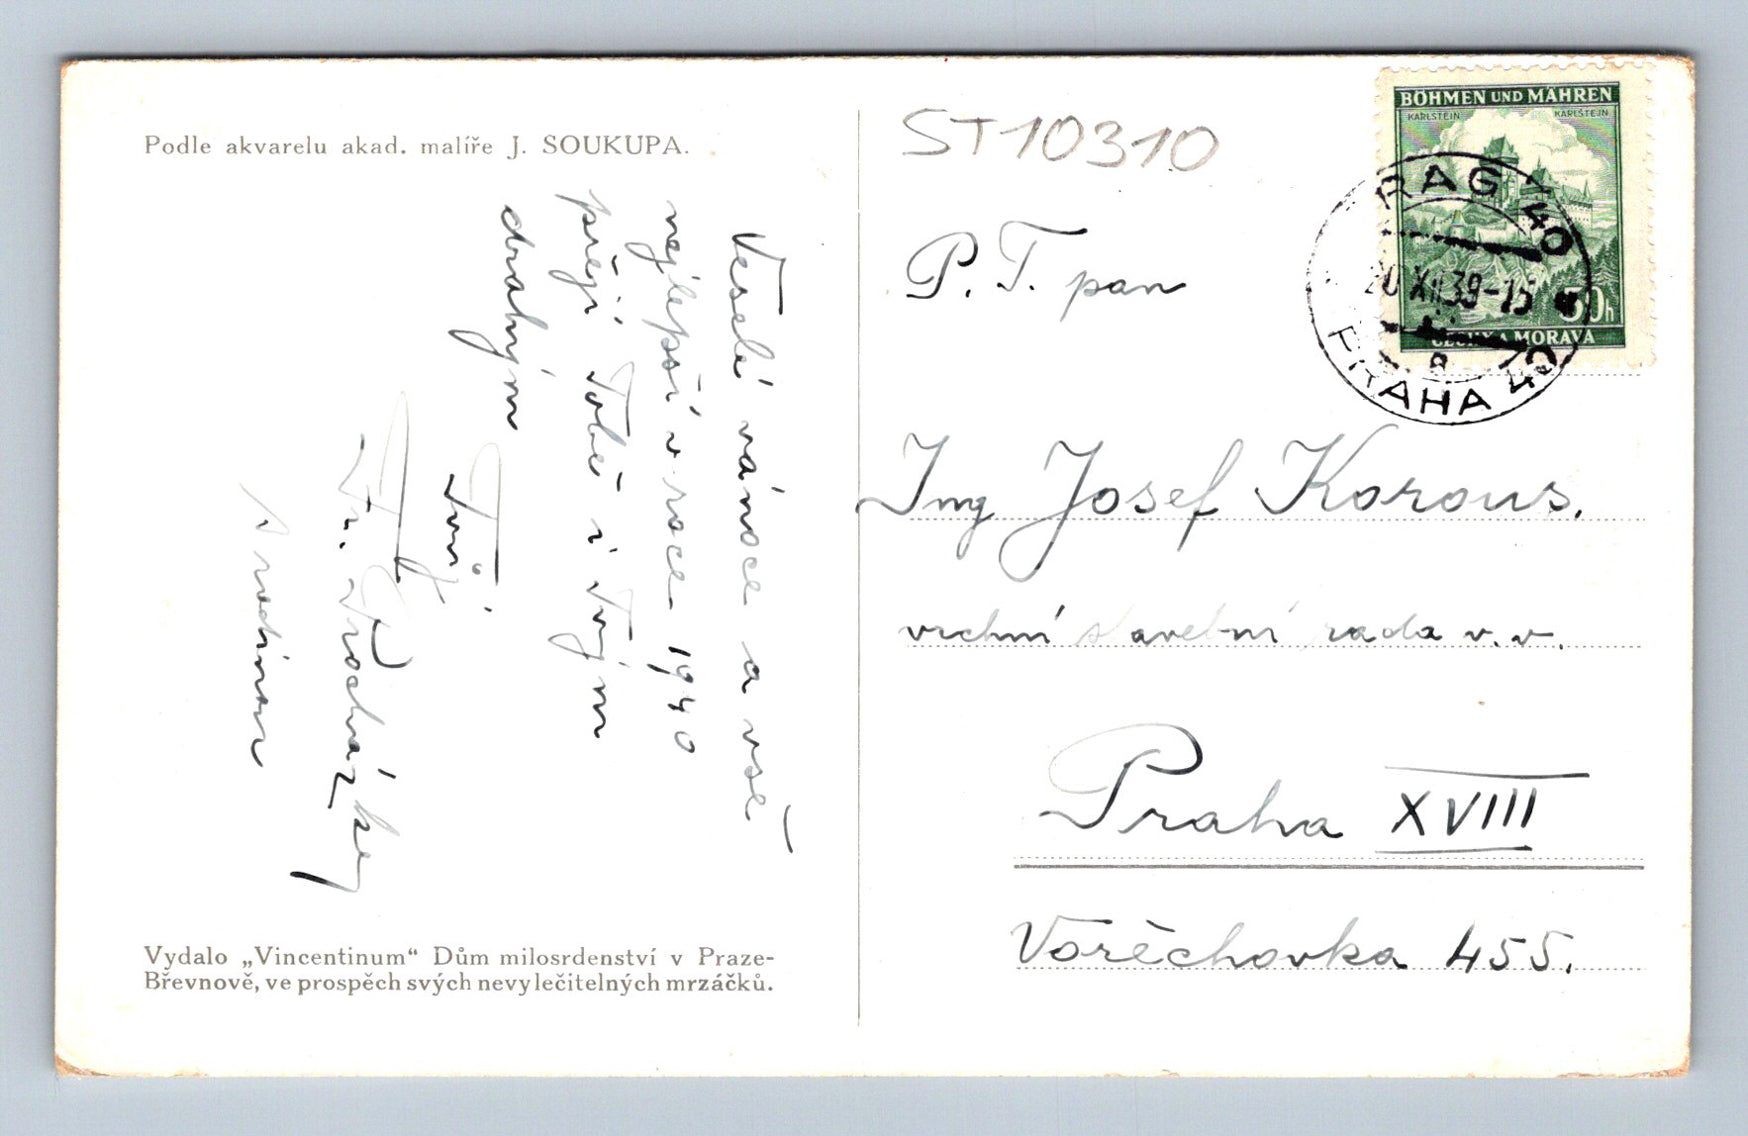 Podle akvarelu akad. malíře J. SOUKUPA.
Veselé vánoce a vše
nejlepší v roce 1940
přeji Tobě i Tvým
drahým
Tvůj
Fr. Procházka
s rodinou
Vydalo „Vincentinum“ Dům milosrdenství v Praze-
Břevnově, ve prospěch svých nevyléčitelných mrzáčků.
ST10310
P. T. pan
Ing Josef Korous.
vrchní stavební rada v. v.
Praha XVIII
Vořěchovka 455.
BÖHMEN UND MÄHREN
KARLSTEIN KARLSTEIN
50h
ČECHY A MORAVA
PRAG 40
20 XII 39-15
8
PRAHA 40